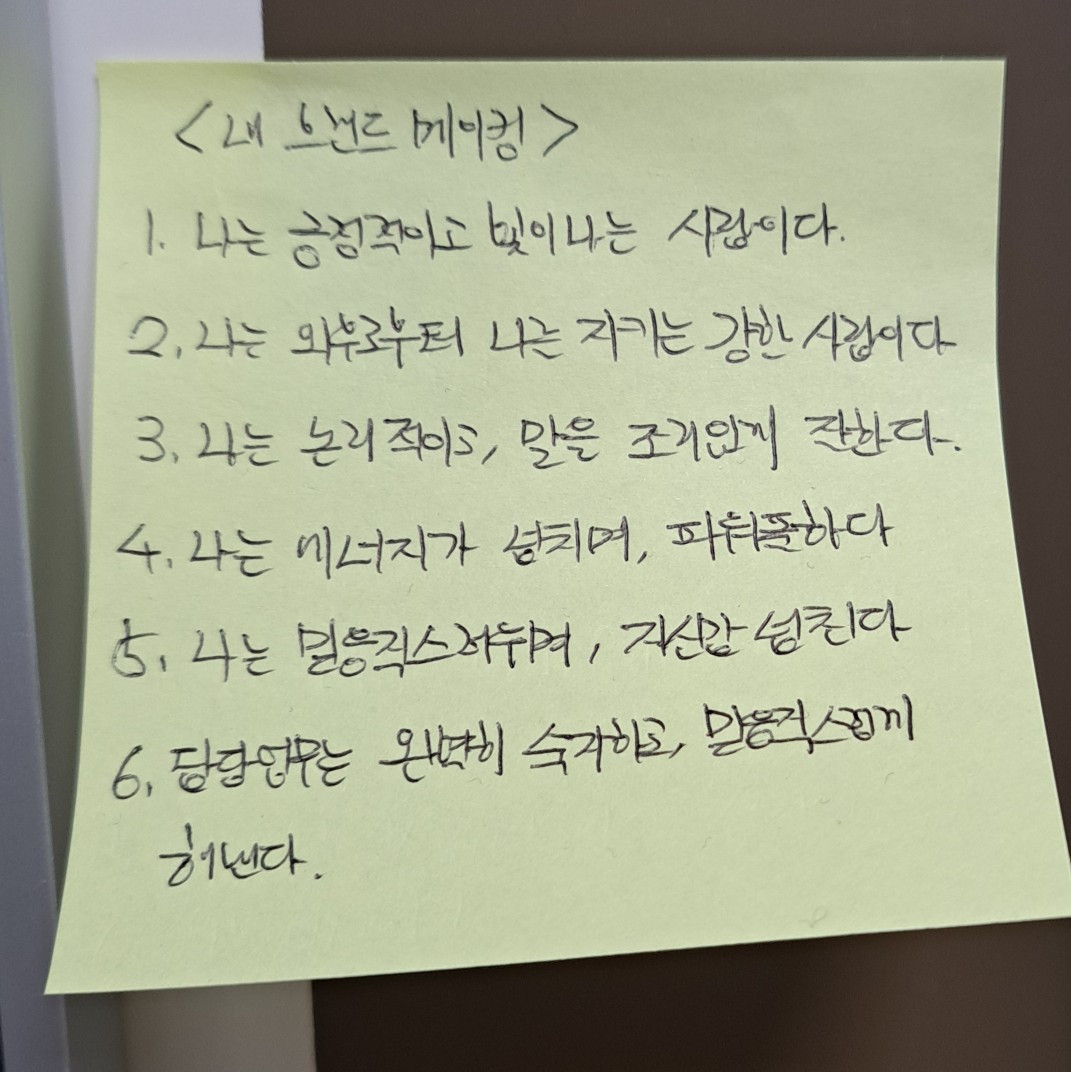 <내 브랜드 메이킹>
1. 나는 긍정적이고 빛이나는 사람이다.
2. 나는 외부로부터 나를 지키는 강한 사람이다
3. 나는 논리적이고, 말을 조리있게 잘한다.
4. 나는 에너지가 넘치며, 파워풀하다
5. 나는 믿음직스러우며, 자신감 넘친다
6. 담당업무는 완벽히 숙지하고, 믿음직스럽게
해낸다.